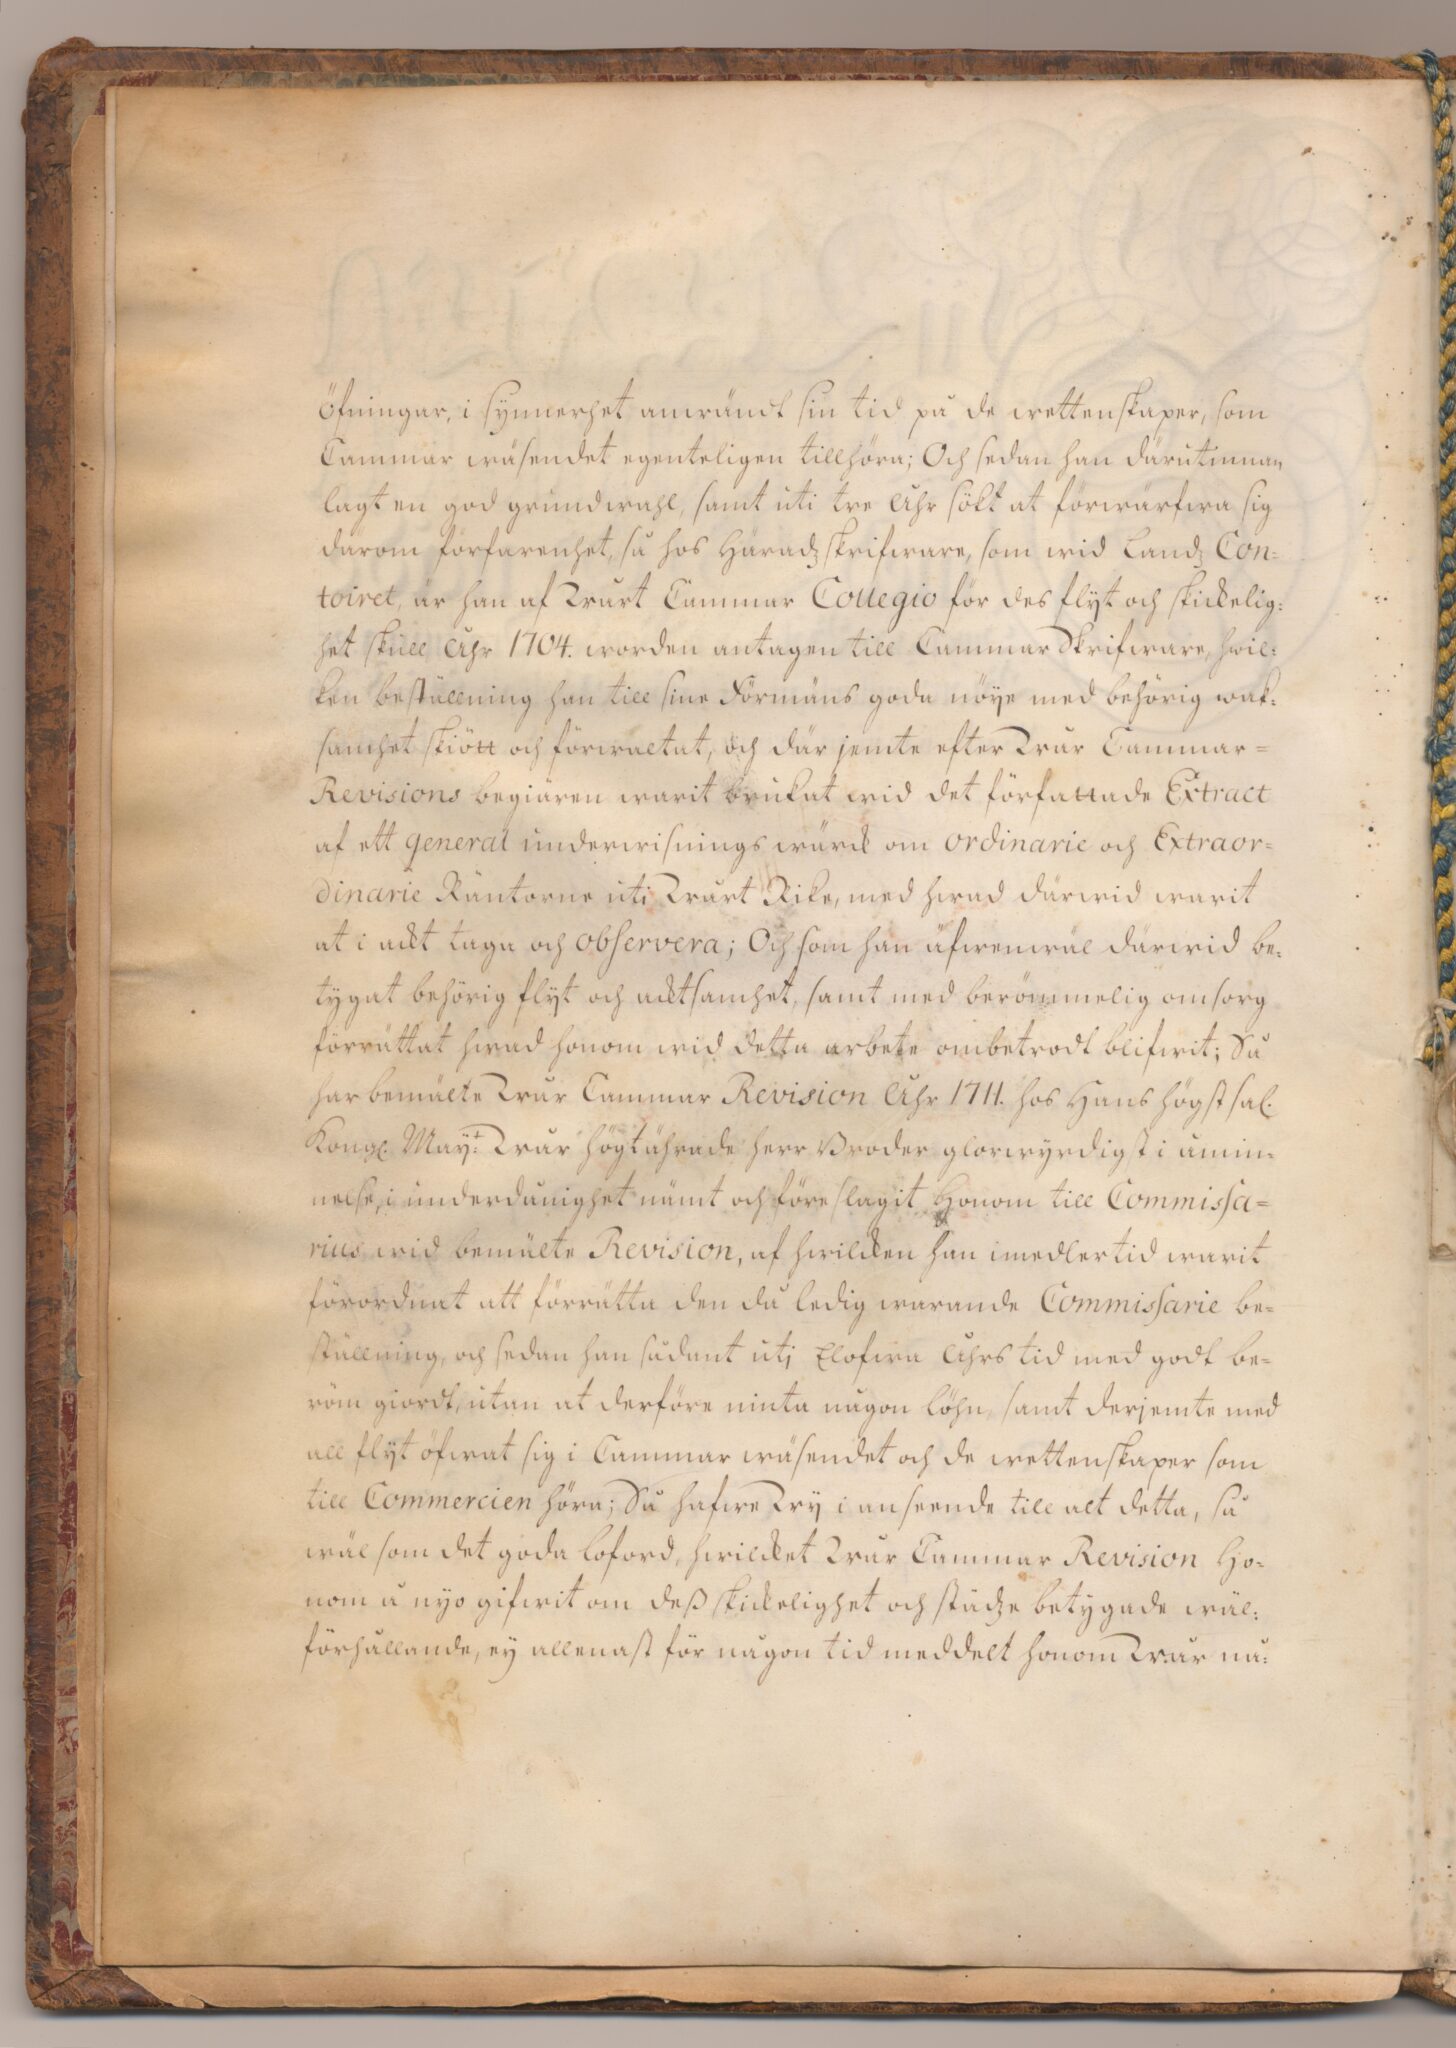 öfningar, i synnerhet anwändt sin tid på de wettenskaper, som
Cammar wäsendet egenteligen tillhöra; Och sedan han därutinnan
lagt en god grundwahl, samt uti tre Åhr sökt at förwärfwa sig
därom förfarenhet, så hos Häradz skrifware, som wid Landz Con-
toiret, är han af Wårt Cammar Collegio för des flyt och skickelig-
het skull Åhr 1704. worden antagen till Cammar Skrifware, hwil-
ken beställning han till sine Förmäns goda nöye med behörig wak-
samhet skiött och förwaltat, och där jemte efter Wår Cammar-
Revisions begiären warit brukat wid det författade Extract
af ett general underwisnings wärck om ordinarie och Extraor-
dinarie Räntorne uti Wårt Rike, med hwad därwid warit
at i ackt taga och observera; Och som han äfwenwäl därwid be-
tygat behörig flyt och acktsamhet, samt med berömmelig omsorg
förrättat hwad honom wid detta arbete ombetrodt blifwit; Så
har bemälte Wår Cammar Revision Åhr 1711. hos Hans högstsal.
Kongl. Mayt: Wår högtährade herr Broder glorwyrdigst i åmin-
nelse, i underdånighet nämt och föreslagit Honom till Commissa-
rius wid bemälte Revision, af hwilcken han imedlertid warit
förordnat att förrätta den då ledig warande Commissarie be-
ställning, och sedan han sådant uti Elofwa Åhrs tid med godt be-
röm giordt, utan at derföre niuta någon löhn, samt derjemte med
all flyt öfwat sig i Cammar wäsendet och de wettenskaper som
till Commercien höra; Så hafwe Wy i anseende till alt detta, så
wäl som det goda loford, hwilcket Wår Cammar Revision Ho-
nom å nyo gifwit om deß skickelighet och städze betygade wäl-
förhållande, ey allenast för någon tid meddelt honom Wår nå-